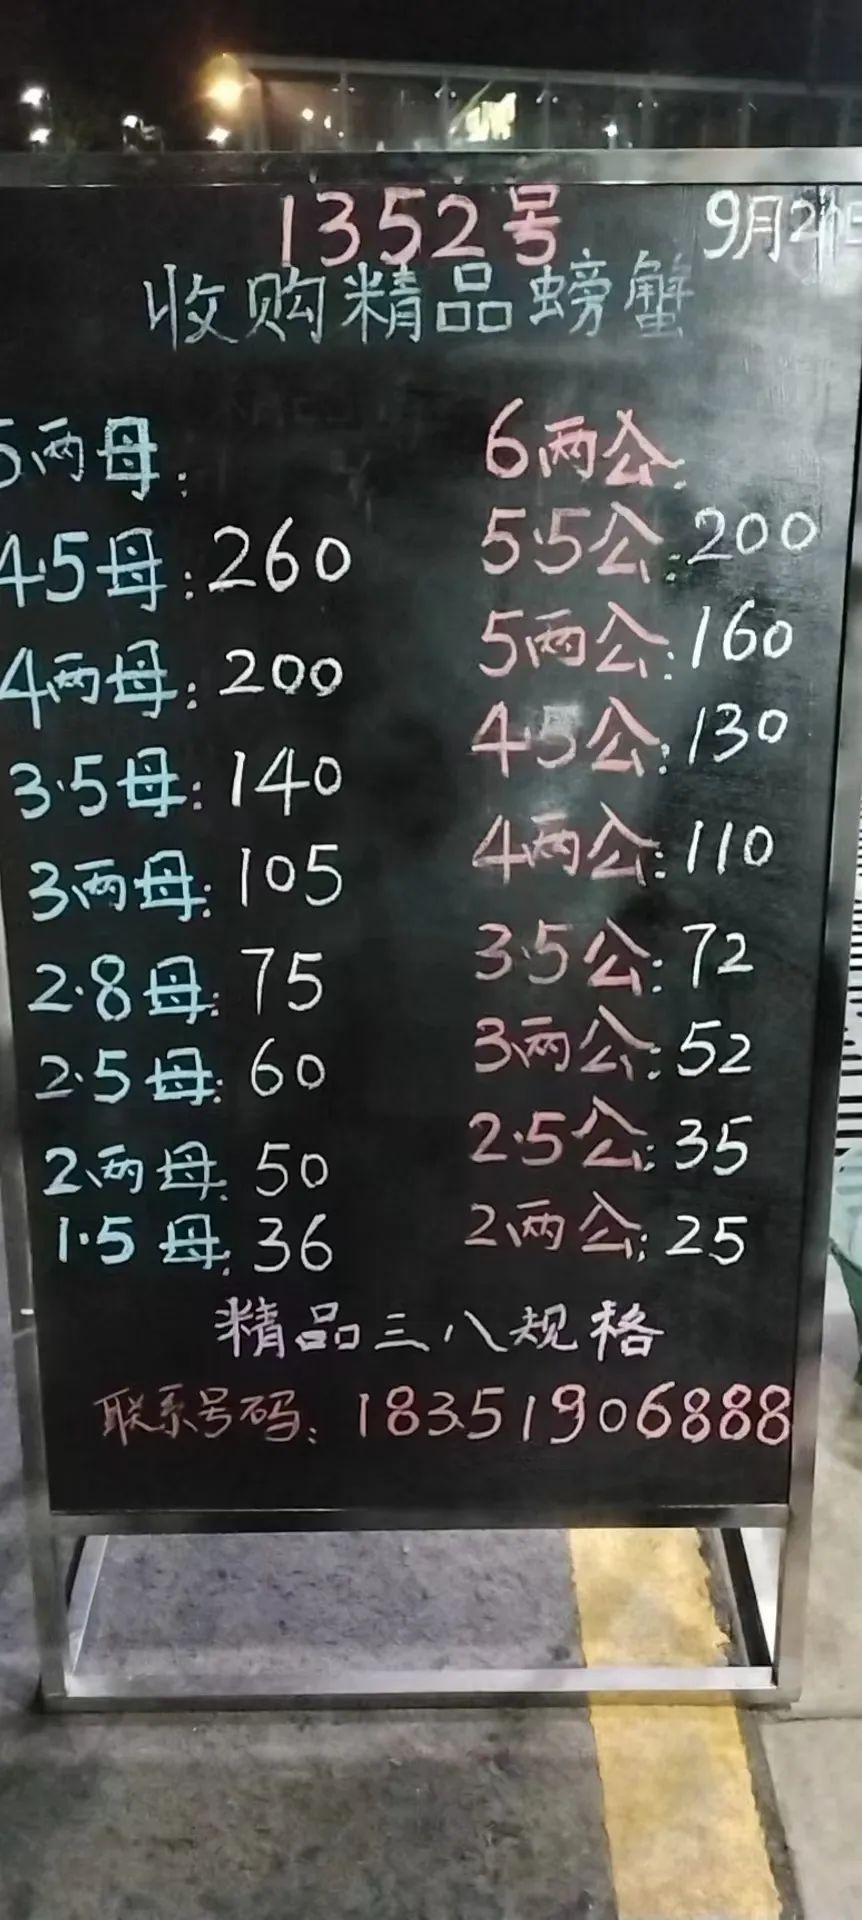 1352号 9月20日
收购精品螃蟹
5两母: 6两公:
4.5母:260 5.5公:200
4两母:200 5两公:160
3.5母:140 4.5公:130
3两母:105 4两公:110
2.8母:75 3.5公:72
2.5母:60 3两公:52
2两母:50 2.5公:35
1.5母:36 2两公:25
精品三八规格
联系号码:18351906888